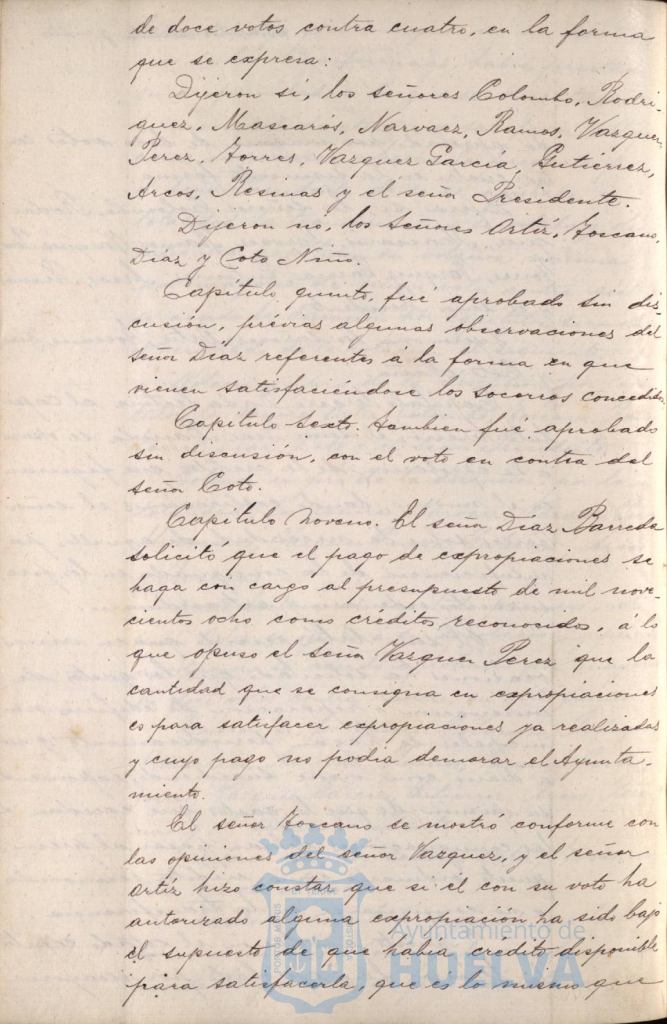 de doce votos contra cuatro, en la forma
que se expresa:
Dijeron si, los señores Colombo, Rodri-
guez, Mascarós, Narvaez, Ramos, Vazquez
Perez, Torres, Vazquez García, Gutierrez,
Arcos, Resinas y el señor Presidente.
Dijeron no, los señores Ortíz, Toscano,
Díaz y Coto Niño.
Capítulo quinto, fué aprobado sin dis-
cusión, prévias algunas observaciones del
señor Díaz referentes á la forma en que
vienen satisfaciéndose los socorros concedidos.
Capítulo sexto. tambien fué aprobado
sin discusión, con el voto en contra del
señor Coto.
Capítulo noveno. El señor Díaz Barreda
solicitó que el pago de expropiaciones se
haga con cargo al presupuesto de mil nove-
cientos ocho como créditos reconocidos, á lo
que opuso el señor Vazquez Perez que la
cantidad que se consigna en expropiaciones
es para satisfacer expropiaciones ya realizadas
y cuyo pago no podia demorar el Ayunta-
miento.
El señor Toscano se mostró conforme con
las opiniones del señor Vazquez, y el señor
Ortíz hizo constar que si él con su voto ha
autorizado alguna expropiación ha sido bajo
el supuesto de que había crédito disponible
para satisfacerla, que es lo mismo que
Ayuntamiento de
HUELVA